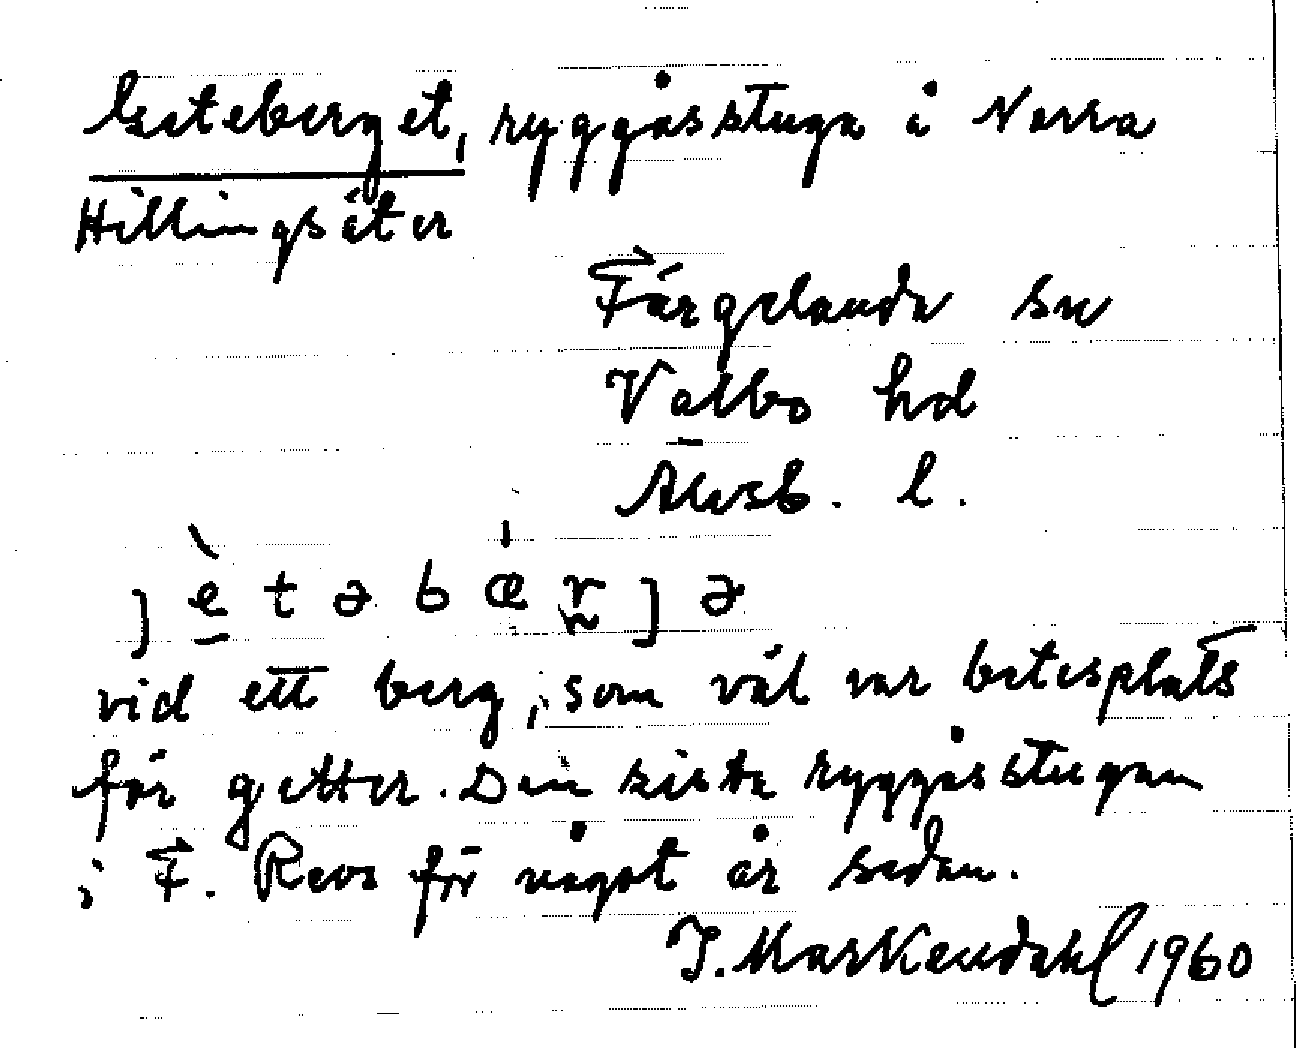 Geteberget, ryggåsstuga i Norra
Hillingsäter
Färgelanda sn
Valbo hd
Älvsb. l.
j è t ə b æ r j ə
vid ett berg, som väl var betesplats
för getter. Den sista ryggåsstugan
i F. Revs för något år sedan.
J. Markendahl 1960